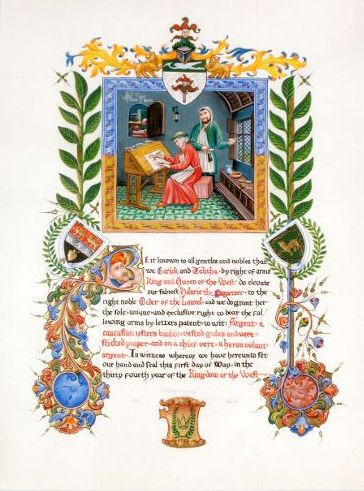 Be it known to all gentles and nobles that
we Tarick and Talitha · by right of arms
King and Queen of the West · do elevate
our subject Valerie the to the
right noble Order of the Laurel · and we do grant her
the sole · unique · and exclusive right to bear the fol
lowing arms by letters patent · to wit: Argent · a
caucasian western bashie · vested gules and vert ·
proper · and on a chief vert · a heron volant
argent · In witness whereof we have hereunto set
our hand and seal this first day of May · in the
thirty fourth year of the Kingdom of the West